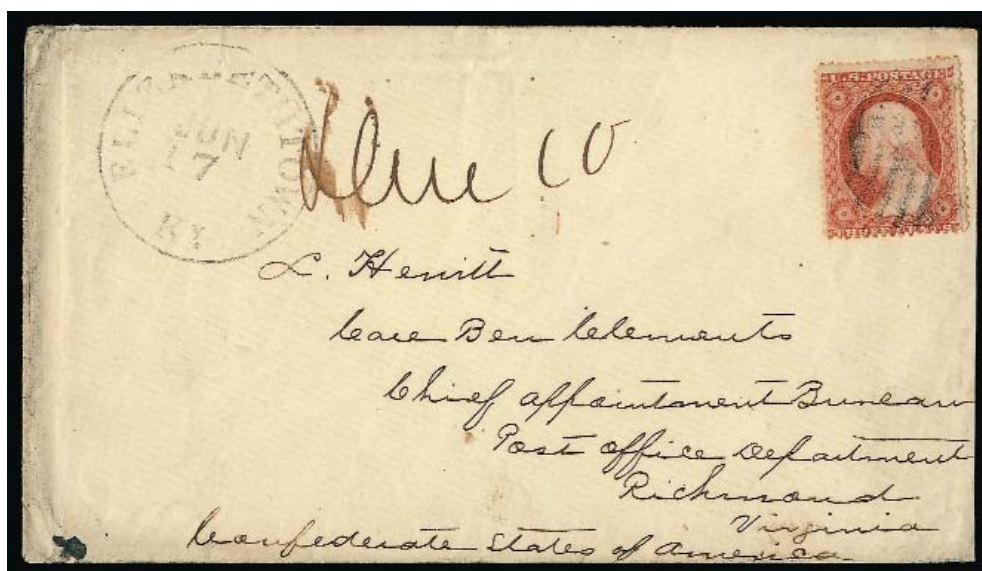 ELIZABETHTOWN
JUN
17
KY
U.S. POSTAGE
Due 10
L. Hewitt
Care Ben Clements
Chief appointment Bureau
Post office Department
Richmond
Virginia
Confederate States of America